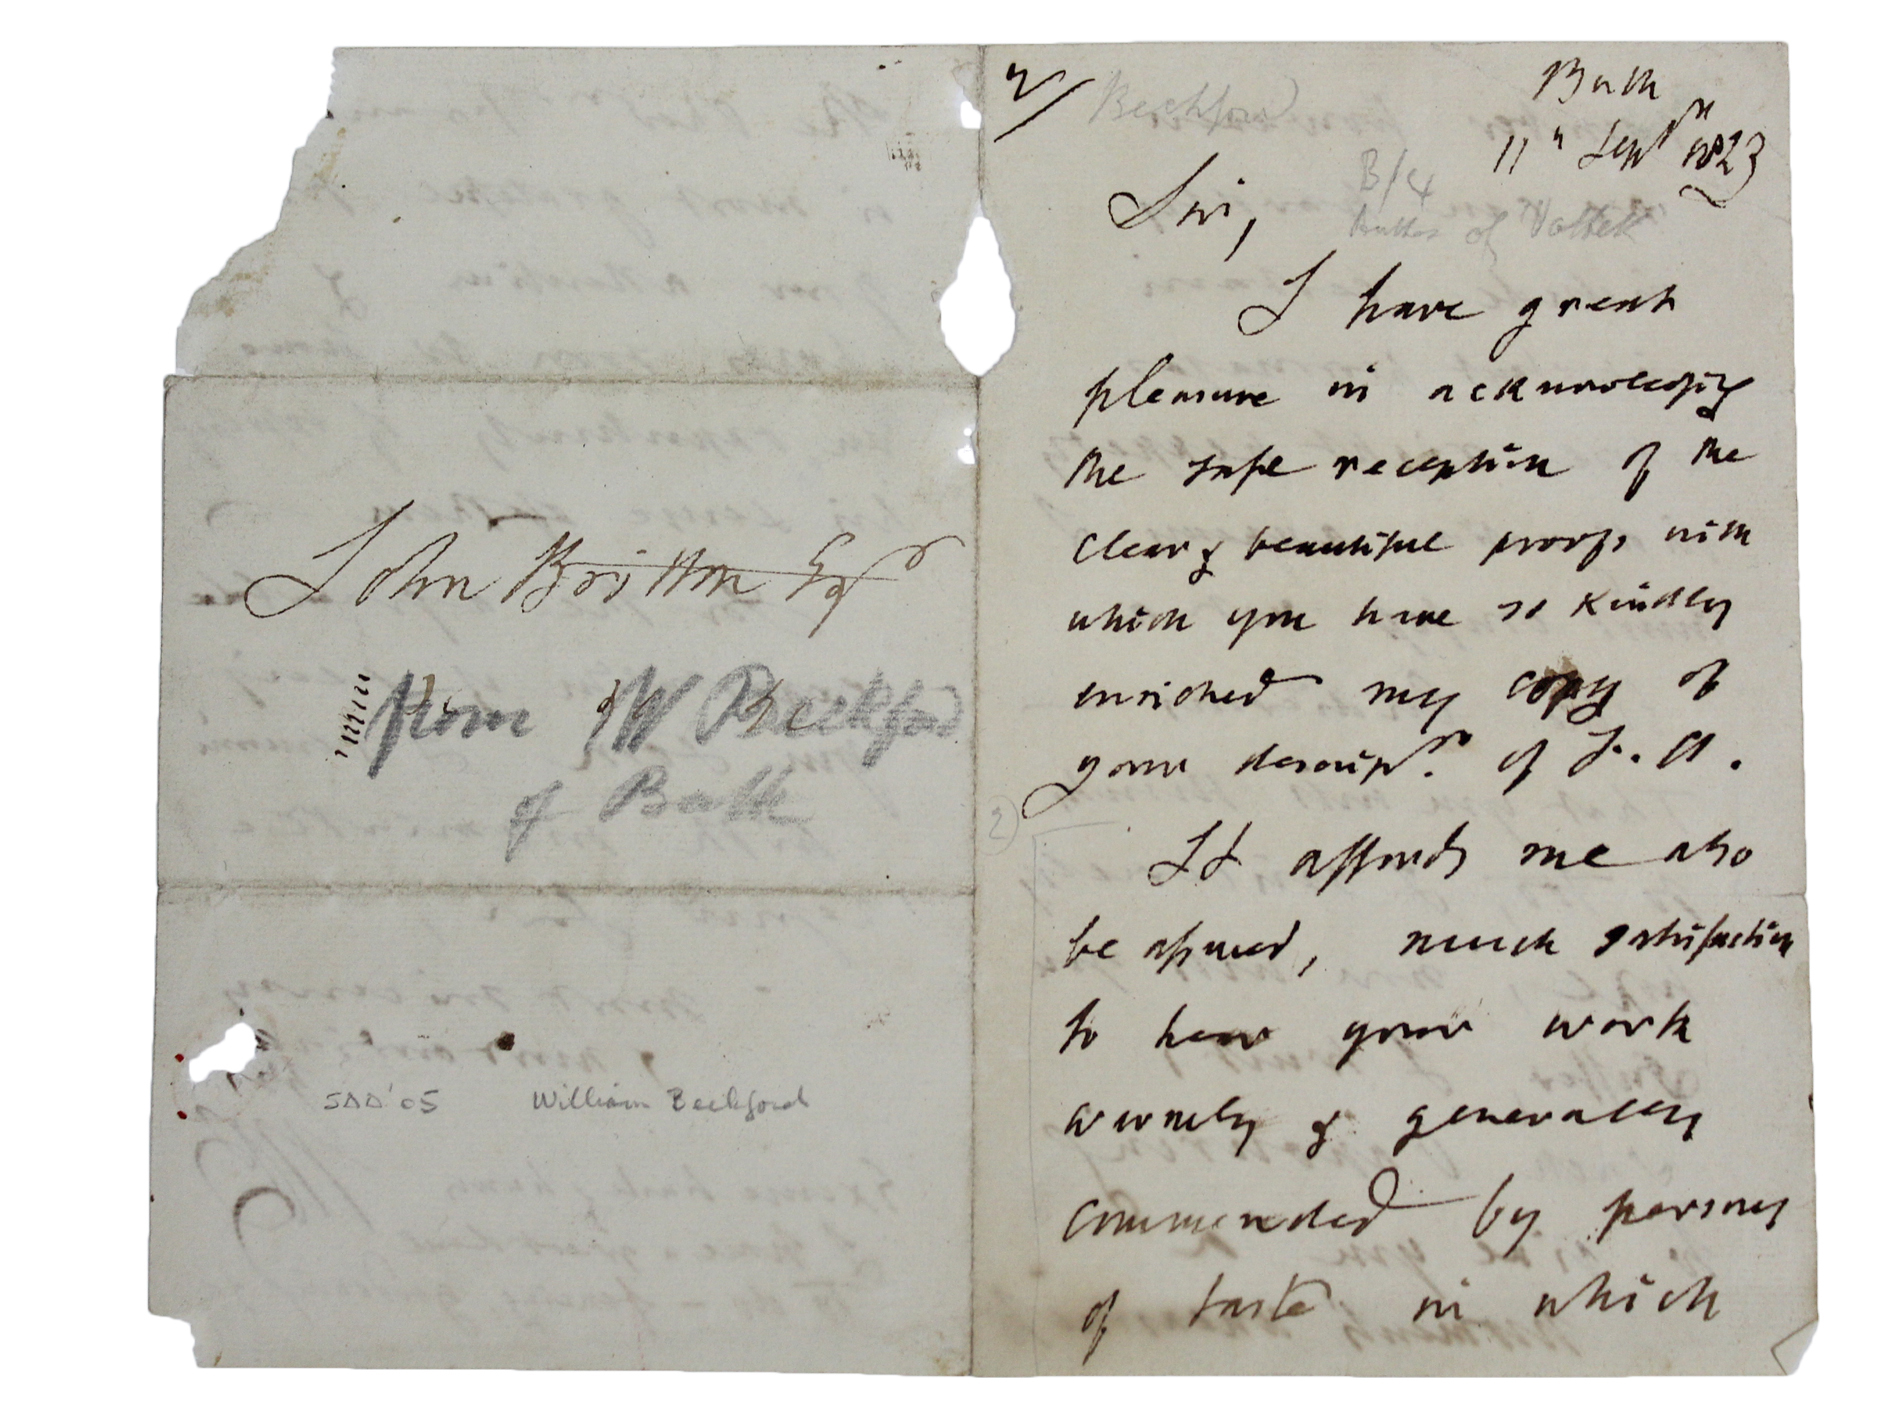 John Britton Esqr
from W Beckford
of Bath
SDD'05 William Beckford
2/ Beckford
Bath
11th Septr 1823
B/4
Author of Vathek
Sir,
I have great
pleasure in acknowledging
the safe reception of the
clear & beautiful proofs with
which you have so kindly
enriched my copy of
your descripn. of F. A.
2
It affords me also
be assured, much satisfaction
to hear your work
warmly & generally
commended by persons
of taste in which